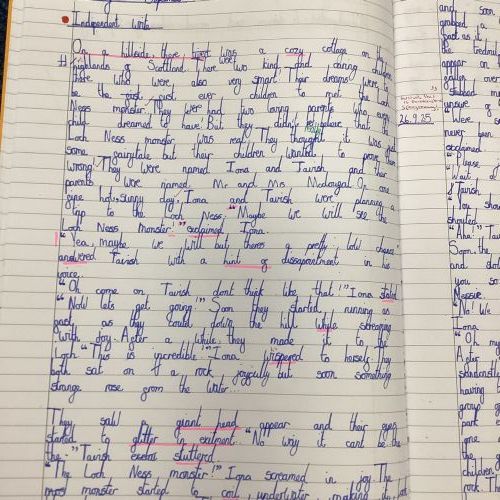 Independent write
On a hillside, there was a cozy cottage on the
highlands of Scotland. There were two kind and daring children
there who were also very smart. Their dreams were to
be the first ever children to met the Loch
Ness monster. They were had two loving parents who every
child dreamed to have. But they didn't believe that the
Loch Ness monster was real. They thought it was just
some fairytale but they children wanted to prove them
wrong! They were named Iona and Tavish and their
parents were named Mr and Mrs Mcdougal. On one
fine hot, sunny day, Iona and Tavish were planning a
trip to the Loch Ness. "Maybe we will see the
Loch Ness monster!" exclaimed Iona.
"Yea, maybe we will but there's a pretty low chance"
answered Tavish with a hint of dissapointment in his
voice.
"Oh come on, Tavish dont think like that!" Iona stated
"Now lets get going!" Soon they started running as
fast as they could down the hill while screaming
with joy. After a while, they made it to the
Loch "This is incredible" Iona wispered to herself they
both sat on a rock joyfully but soon something
strange rose from the water...
They saw a giant head appear and their eyes
started to glitter in exitment. "No way it cant be the
the-" Tavish stuttered
"The Loch Ness monster!" Iona screamed in joy. The
monster started to underwater making the
and soon
grabbed a
appear on
of Tavish
shouted
"Aha!" 
Soon, the
you so
Nessie
"No! We
Iona
"Oh my
After
having
group of
part
one
the
children
26.9.25